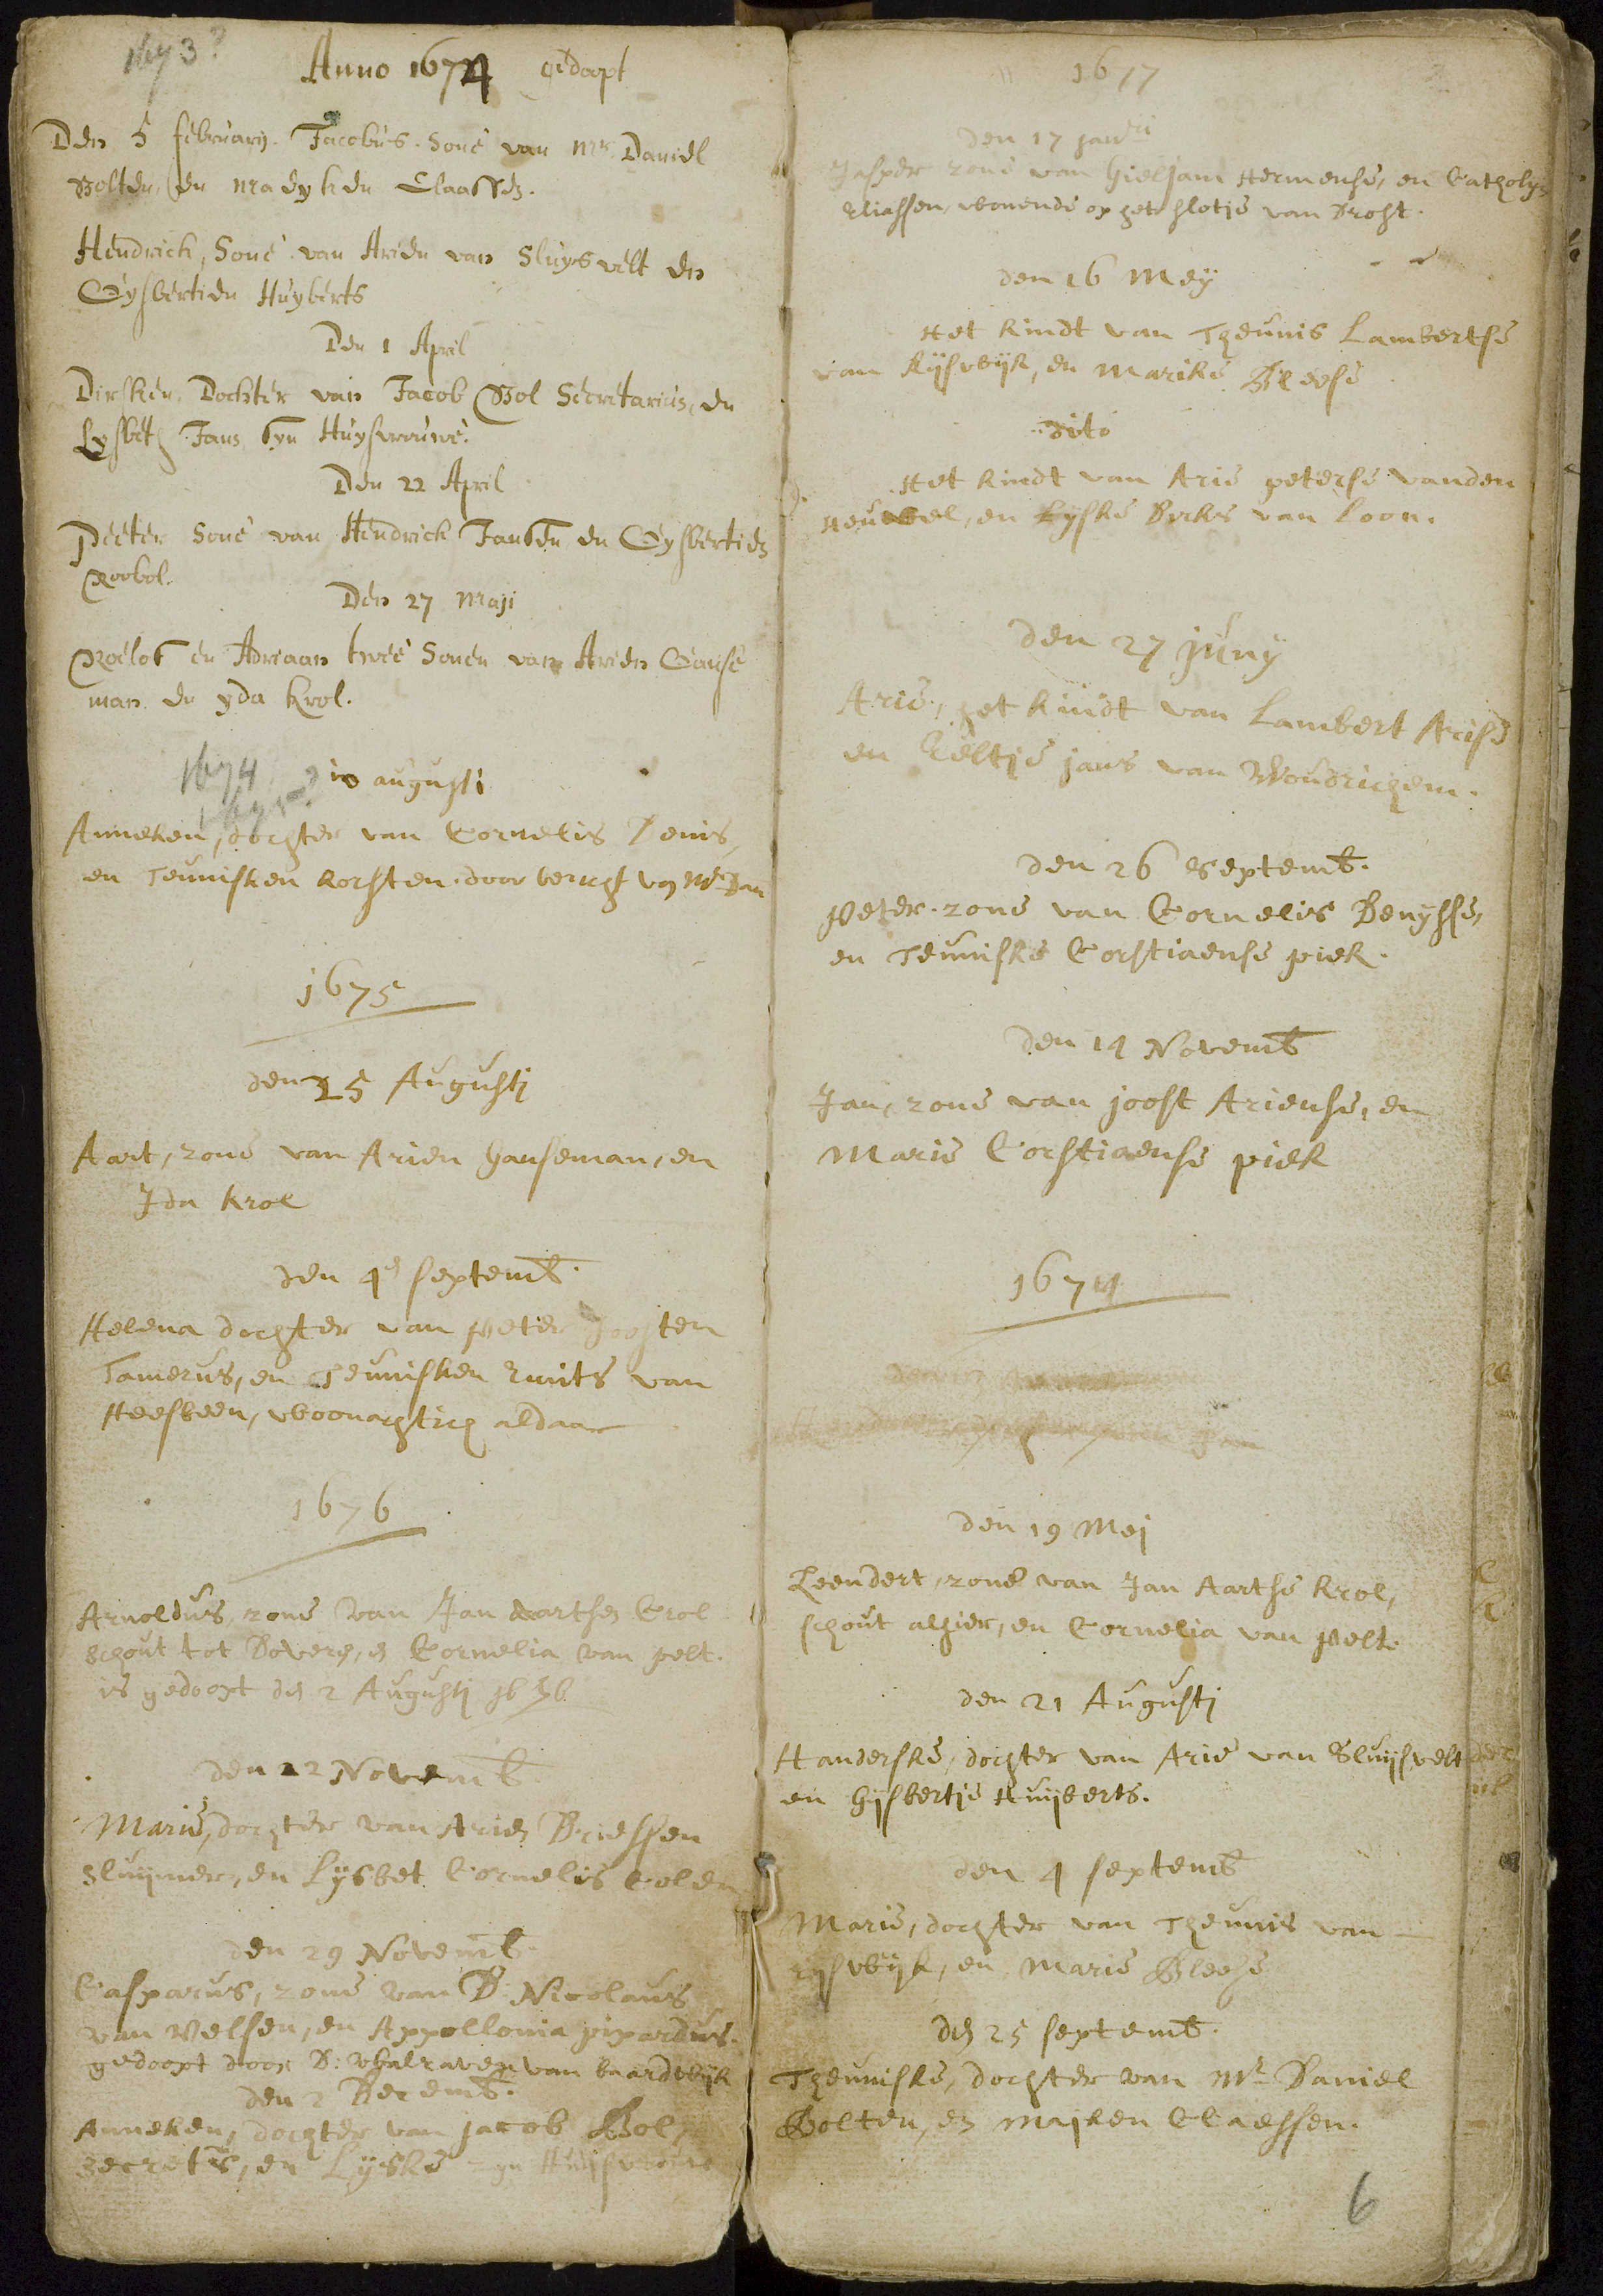 1673?
Anno 1674 gedoopt
Den 5 februarij. Jacobus. Sone van Mr. Daniel
Bolten, en Maeyken Claassen.
Hendrick, Sone van Arien van Sluysvelt en
Gysbertien Huyberts
Den 1 April
Dirsken, Dochter van Jacob Bol Secretarius, en
Lysbeth Jans syn Huysvrouwe.
Den 22 April
Peeter Sone van Hendrick Jansen en Gysbertien
Roobol.
Den 27 Maji
Roelof en Adriaan twee Sonen van Arien Ganse
man en yda Krol.
1674
in augusti
Anneken, dochter van Cornelis Denis,
en Teunisken Korsten. door bericht van Mr Dan
1675
den 25 Augustj
Aart, zone van Arien Hanseman, en
Ida Krol
den 4e septemb.
Helena dochter van Peter Joosten
Tamerus, en Teunisken van
Heesbeen, woonachtich aldaar
1676
Arnoldus, zone van Jan Aartsen Crol
Schout tot Doveren, en Cornelia van pelt.
is gedoopt den 2 Augustj 1676
den 22 Novemb.
Marie, dochter van Arien Driessen
Sluijmer, en Lijsbet Cornelis Colem
den 29 Novemb.
Casparus, zone van D. Nicolaus
van Velsen, en Appollonia pipardus.
gedoopt door D: Whalraven van baardwijk
den 2 Decemb.
Anneken, dochter van jacob Bol,
secrets, en Lijske zyn Huijsvrouwe
1677
den 17 janri
Jasper zone van Hieljam Hermense, en Catholyn
Eliassen, wonende op het slotje van Drost.
den 16 Meij
Het kindt van Theunis Lambertse
van Rijswijk, en Marike Bleese
dito
Het kindt van Arie peterse vanden
Heuvel, en Lijske Dirks van Loon.
den 27 junij
Arie, het kindt van Lambert Arise
en Eeltje jans van Woudrichem.
den 26 Septemb.
Peter zone van Cornelis Denijsse,
en Teuniske Corstiaense piek.
den 14 Novemb
Jan, zone van joost Ariense, en
Marie Corstiaense piek
1678
den 19 Mej
Leendert, zone van Jan Aartse Krol,
schout alhier, en Cornelia van pelt.
den 21 Augustj
Handerske, dochter van Arie van Sluijsvelt
en Gijsbertje Huijberts.
den 4 septemb
Marie, dochter van Theunis van
rijswijk, en Marie Bleese
den 25 septemb.
Theuniske, dochter van Mr Daniel
Bolten, en Majken Claessen.
6